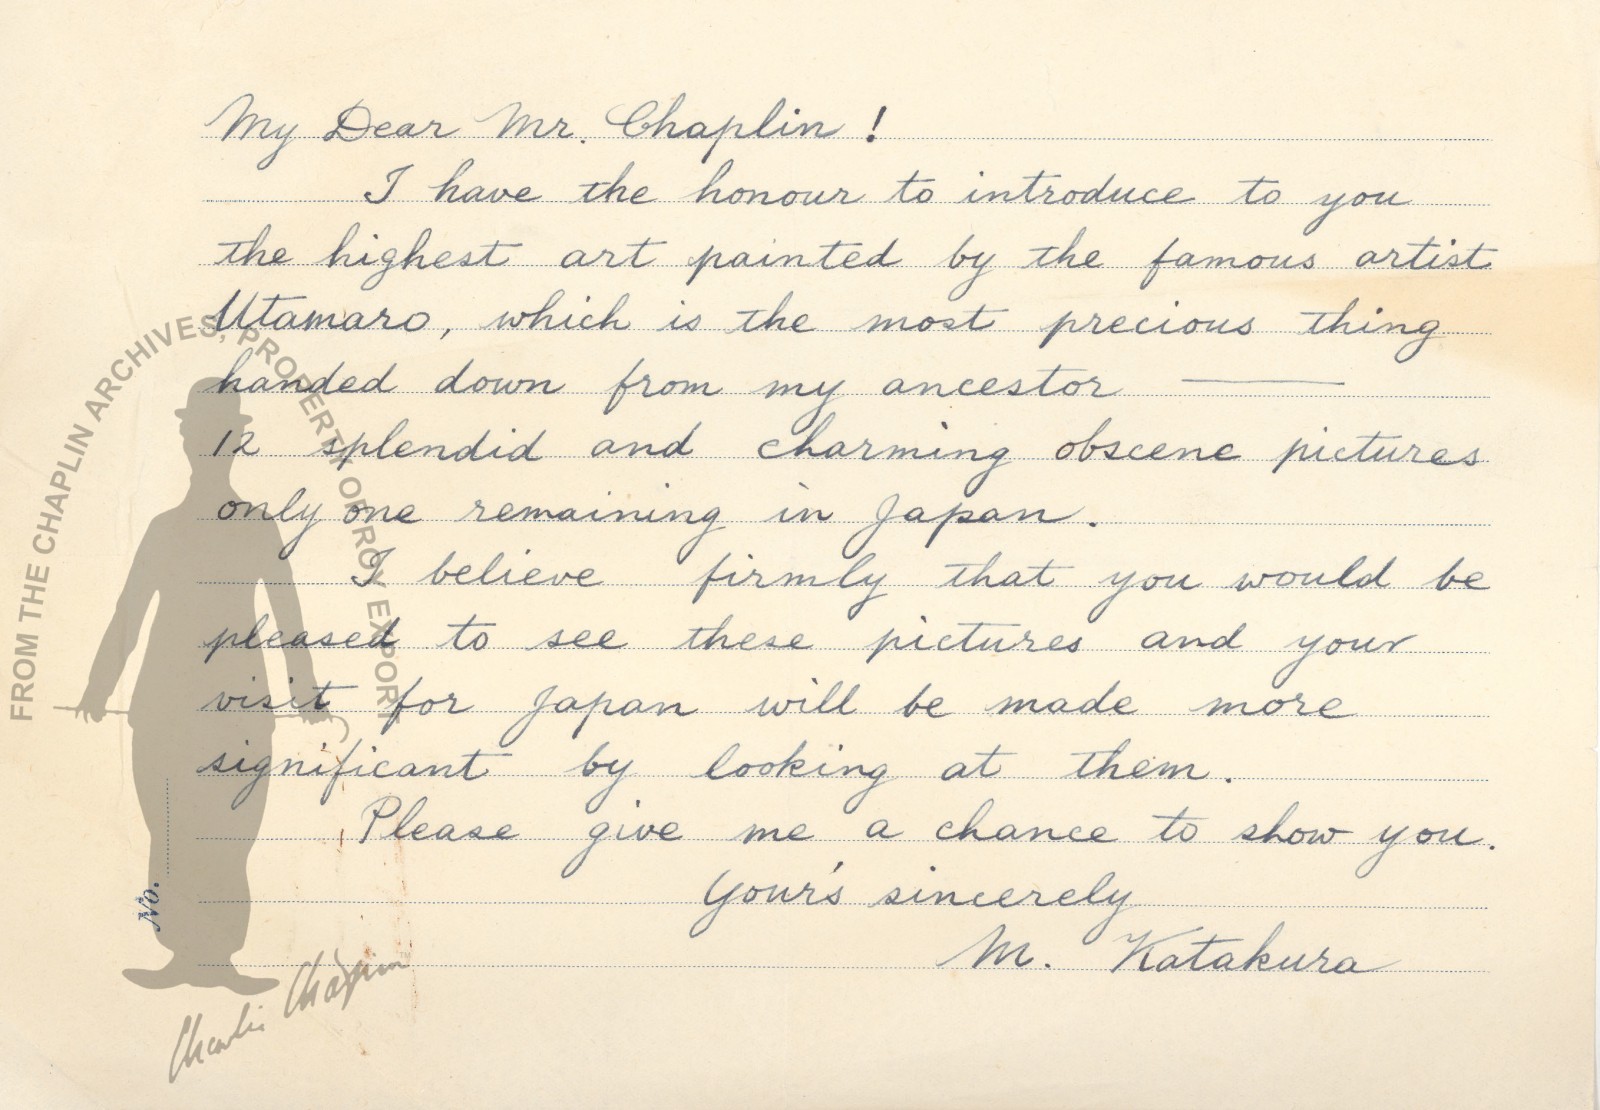 My Dear Mr. Chaplin !
I have the honour to introduce to you
the highest art painted by the famous artist
Utamaro, which is the most precious thing
handed down from my ancestor —
12 splendid and charming obscene pictures
only one remaining in Japan.
I believe firmly that you would be
pleased to see these pictures and your
visit for Japan will be made more
significant by looking at them.
Please give me a chance to show you.
Your's sincerely
M. Katakura
No.
FROM THE CHAPLIN ARCHIVES, PROPERTY OF ROY EXPORT
Charlie Chaplin